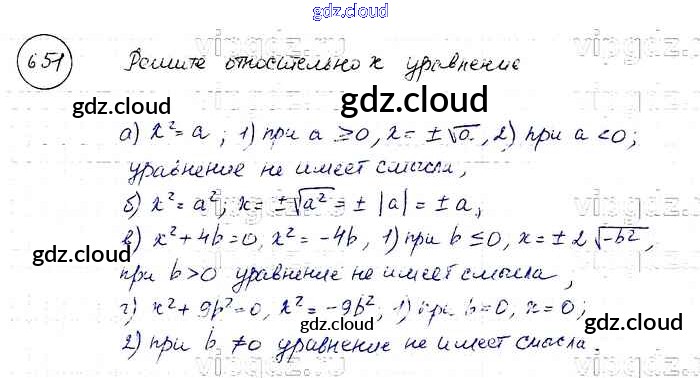 gdz.cloud
651 Решите относительно x уравнение
gdz.cloud gdz.cloud
а) x² = a; 1) при a ≥ 0, x = ± √a, 2) при a < 0;
уравнение не имеет смысла,
б) x² = a²; x = ± √a² = ± |a| = ± a,
в) x² + 4b = 0, x² = -4b, 1) при b ≤ 0, x = ± 2 √-b²,
gdz.cloud gdz.cloud
при b > 0 уравнение не имеет смысла,
г) x² + 9b² = 0, x² = -9b², 1) при b = 0, x = 0;
gdz.cloud gdz.cloud
2) при b ≠ 0 уравнение не имеет смысла.
gdz.cloud